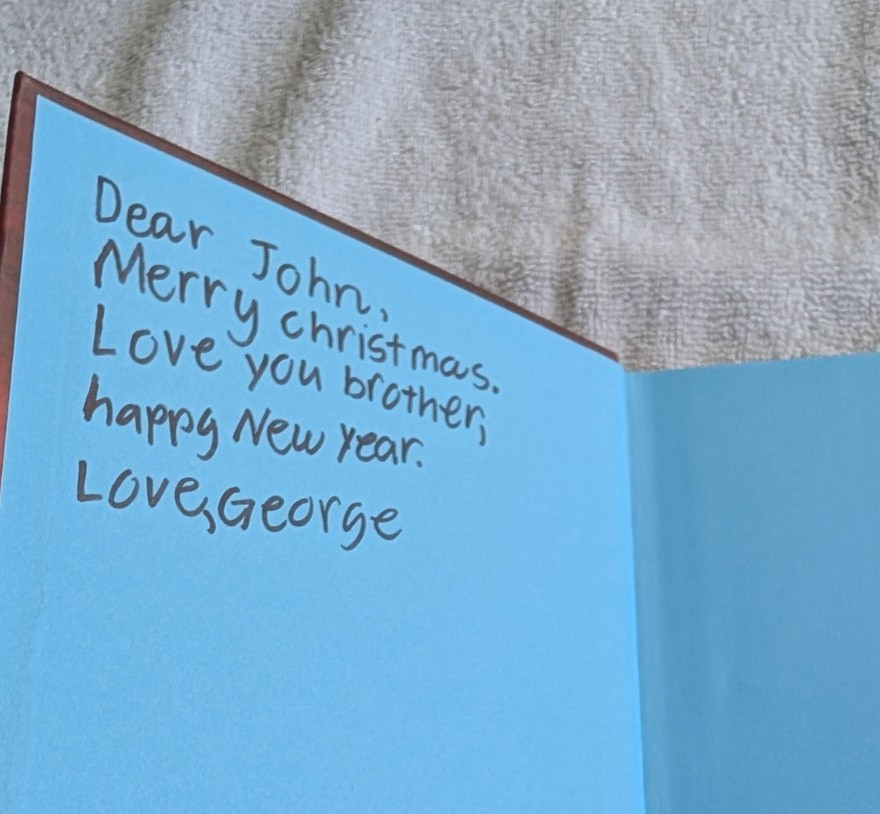 Dear John,
Merry christmas.
Love you brother,
happy New year.
Love,George